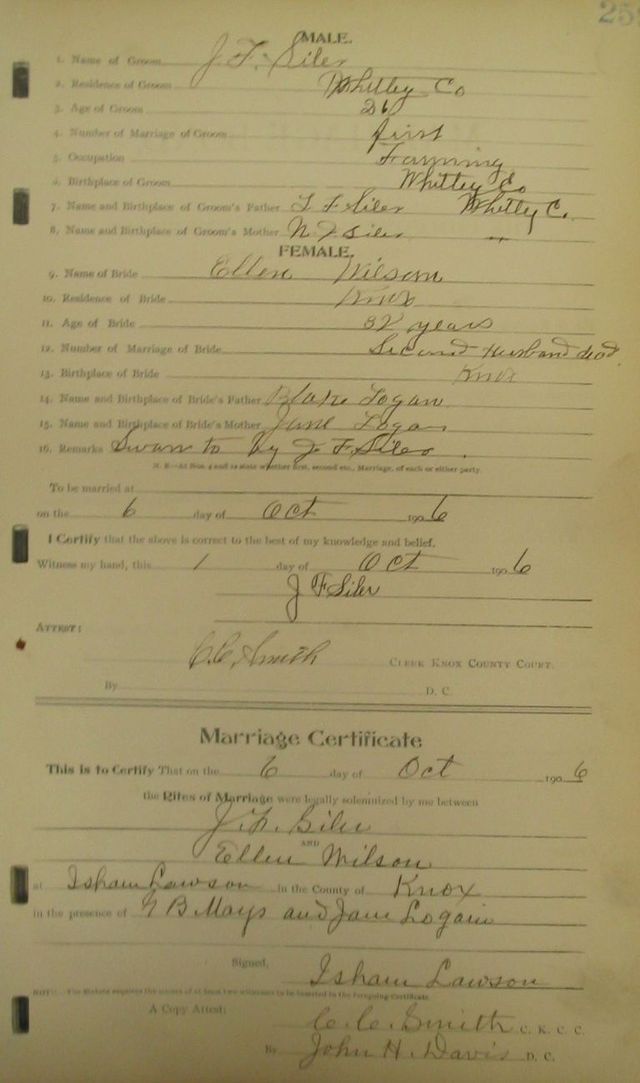 25
MALE.
1. Name of Groom J. F. Siler
2. Residence of Groom Whitley Co
3. Age of Groom 26
4. Number of Marriage of Groom first
5. Occupation Farming
6. Birthplace of Groom Whitley Co
7. Name and Birthplace of Groom's Father L F Siler Whitley C.
8. Name and Birthplace of Groom's Mother N F Siler "
FEMALE.
9. Name of Bride Ellen Wilson
10. Residence of Bride Knox
11. Age of Bride 32 years
12. Number of Marriage of Bride Second Husband dead
13. Birthplace of Bride Knox
14. Name and Birthplace of Bride's Father Blake Logan
15. Name and Birthplace of Bride's Mother Jane Logan
16. Remarks Swarn to by J F Siler.
N. B—At Nos. 4 and 12 state whether first, second etc., Marriage, of each or either party.
To be married at
on the 6 day of Oct 1906
I Certify that the above is correct to the best of my knowledge and belief.
Witness my hand, this 1 day of Oct 1906
J F Siler
ATTEST:
C.C. Smith CLERK KNOX COUNTY COURT.
By D. C.
Marriage Certificate
This is to Certify That on the 6 day of Oct 1906
the Rites of Marriage were legally solemnized by me between
J. F. Siler
AND
Ellen Wilson
at Isham Lawson in the County of Knox
in the presence of B Mays and Jane Logan
Signed, Isham Lawson
NOTE.—The Statute requires the names of at least two witnesses to be inserted in the foregoing Certificate.
A Copy Attest: C. C. Smith C. K. C. C.
By John H. Davis D. C.